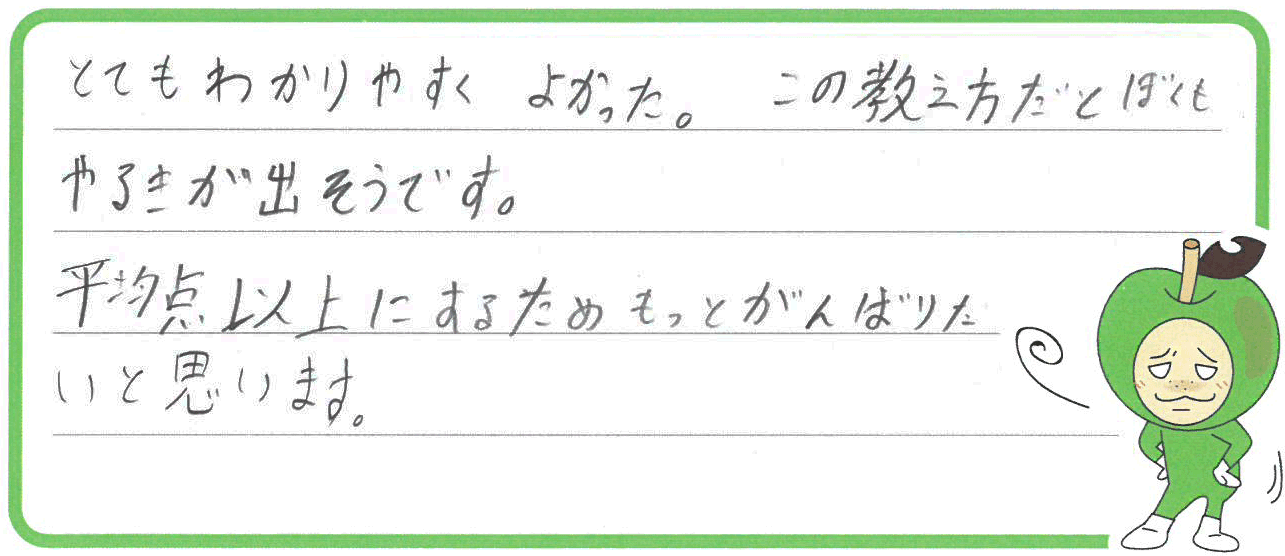 とてもわかりやすく よかった。 この教え方だとぼくも
やるきが出そうです。
平均点以上にするためもっとがんばりた
いと思います。